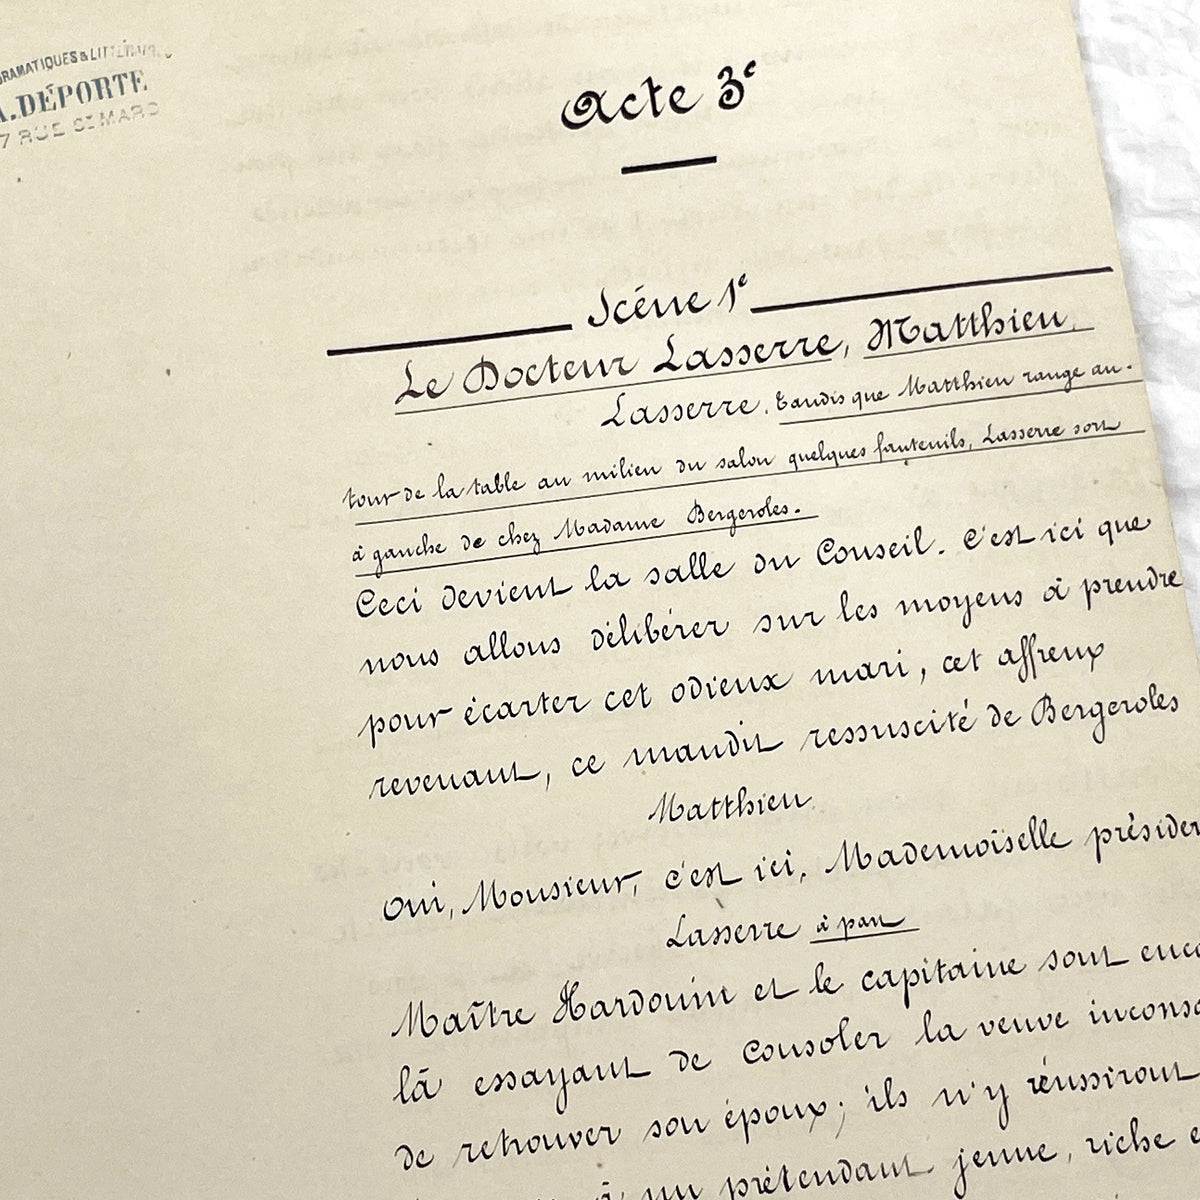 DRAMATIQUES & LITTÉRAI
A. DÉPORTE
7 RUE ST MARC
Acte 3e
Scéne 1e
Le Docteur Lasserre, Matthieu.
Lasserre. tandis que Matthieu range au-
tour de la table au milieu du salon quelques fauteuils, Lasserre sort
à gauche de chez Madame Bergeroles.
Ceci devient la salle du Conseil. C'est ici que
nous allons délibérer sur les moyens à prendre
pour écarter cet odieux mari, cet affreux
revenant, ce maudit ressuscité de Bergeroles
Matthieu
Oui, Monsieur, c'est ici, Mademoiselle présider
Lasserre à part
Maître Hardouin et le capitaine sont enco
là essayant de consoler la veuve incons
de retrouver son époux; ils n'y réussiront
à un prétendant jeune, riche e